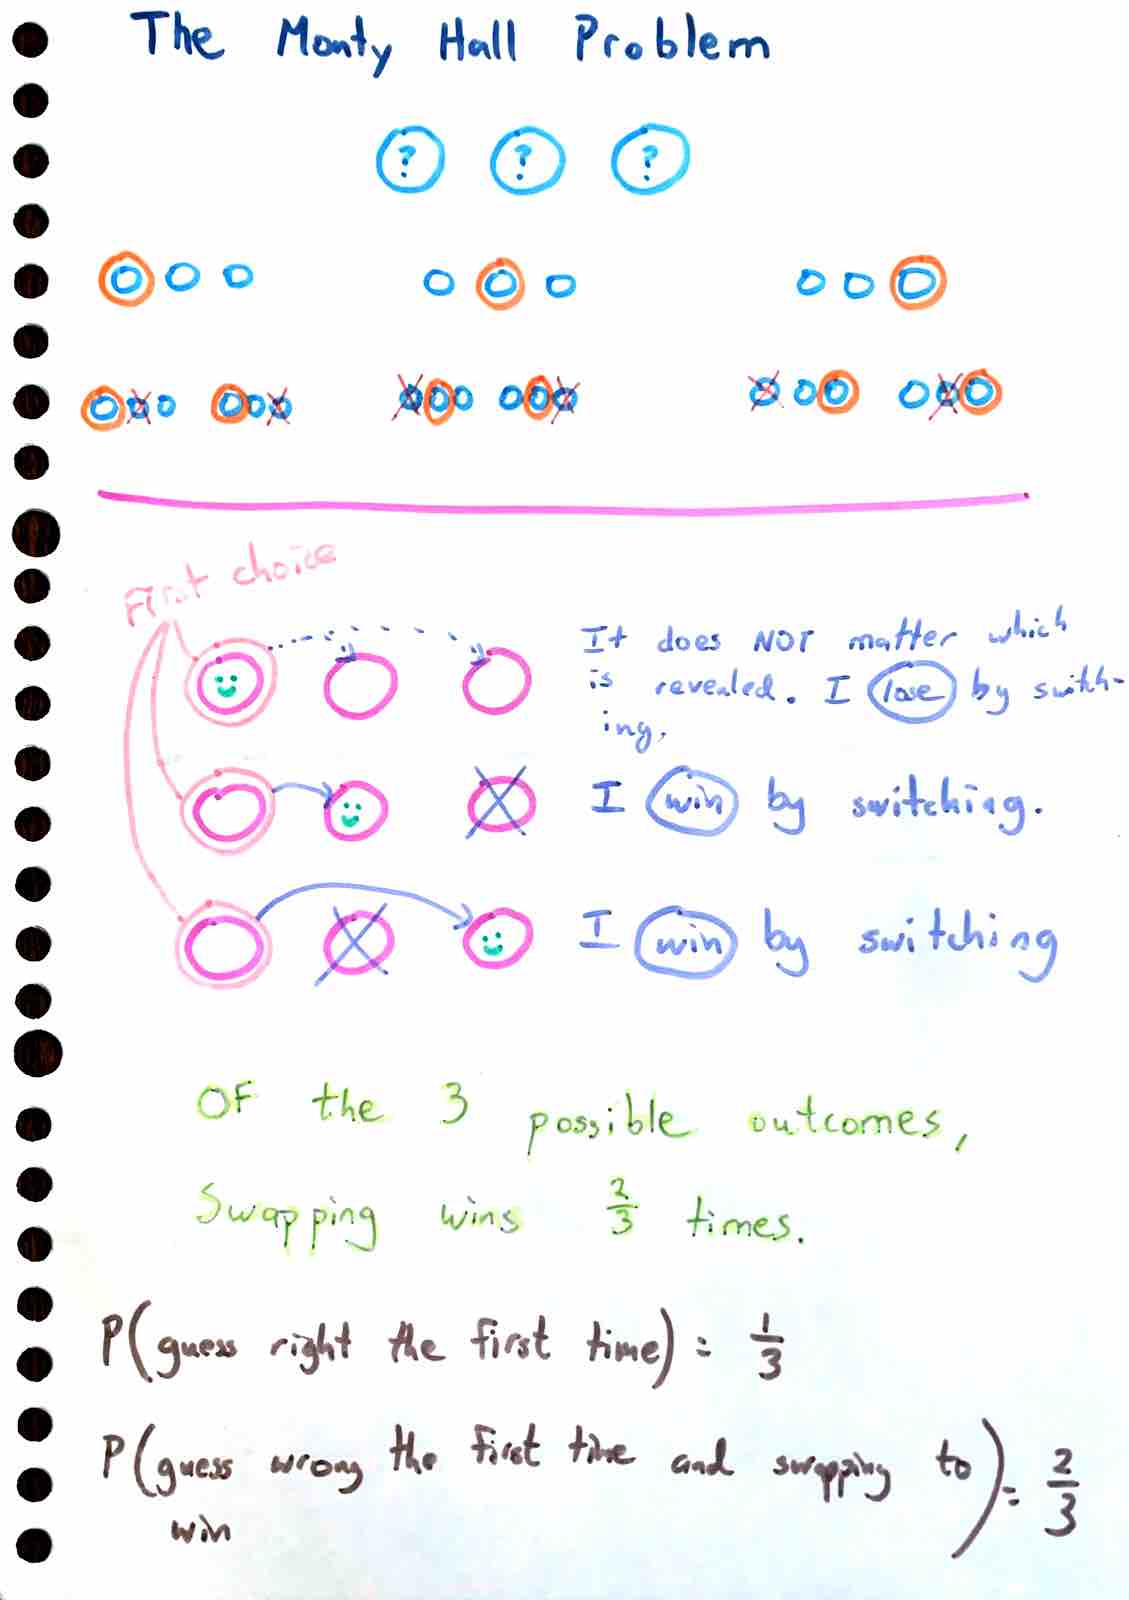 The Monty Hall Problem
? ? ?
First choice
It does NOT matter which
is revealed. I lose by switch-
ing.
I win by switching.
I win by switching
Of the 3 possible outcomes,
Swapping wins 2/3 times.
P(guess right the first time) = 1/3
P(guess wrong the first time and swapping to) = 2/3
win